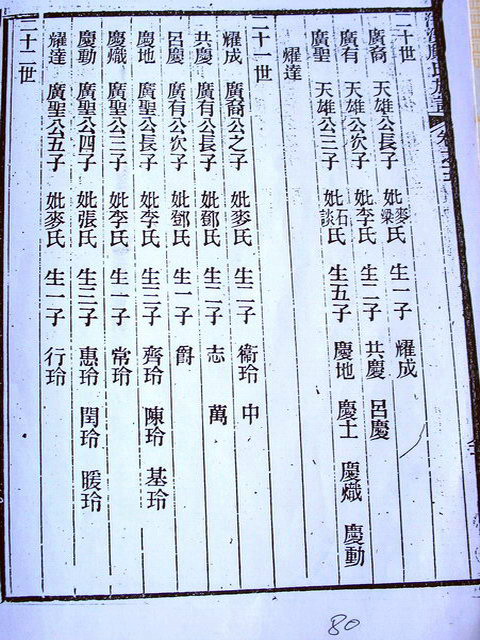 二十世
廣裔 天雄公長子 妣麥梁氏 生一子 耀成
廣有 天雄公次子 妣李氏 生二子 共慶 呂慶
廣聖 天雄公三子 妣石談氏 生五子 慶地 慶土 慶熾 慶動
耀達
二十一世
耀成 廣裔公之子 妣麥氏 生二子 衞玲 中
共慶 廣有公長子 妣鄧氏 生二子 志 萬
呂慶 廣有公次子 妣鄧氏 生一子 爵
慶地 廣聖公長子 妣李氏 生三子 齊玲 陳玲 基玲
慶熾 廣聖公三子 妣李氏 生一子 常玲
慶動 廣聖公四子 妣張氏 生三子 惠玲 閏玲 暖玲
耀達 廣聖公五子 妣麥氏 生一子 行玲
二十二世
80